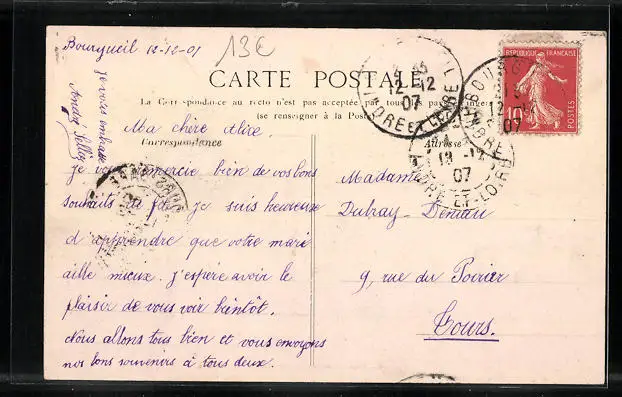 Bourgueil 12-12-07
13€
CARTE POSTALE
La Correspondance au recto n'est pas acceptée par tous les pays étrangers
(se renseigner à la Poste)
Correspondance
Adresse
Ma chère Alice.
je vous remercie bien de vos bons
souhaits de fête je suis heureuse
d'apprendre que votre mari
aille mieux. j'espère avoir le
plaisir de vous voir bientôt.
Nous allons tous bien et vous envoyons
nos bons souvenirs à tous deux.
je vous embrasse
Madame
Dubray-Deniau
9, rue du Poirier
Tours.
REPUBLIQUE FRANÇAISE
10
POSTES
12 -12
07
INDRE ET LOIRE
12 -12
07
INDRE-ET-LOIRE